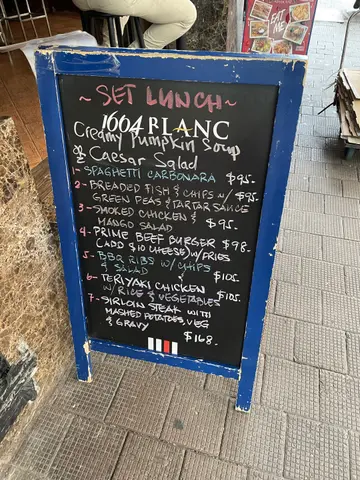 ~ SET LUNCH ~
1664 BLANC
Creamy Pumpkin Soup
& Caesar Salad
1- SPAGHETTI CARBONARA $95-
2- BREADED FISH & CHIPS W/ $95-
GREEN PEAS & TARTAR SAUCE
3- SMOKED CHICKEN & $95-
MANGO SALAD
4- PRIME BEEF BURGER $98-
(ADD $10 CHEESE) W/ FRIES
5- BBQ RIBS W/ CHIPS
& SALAD $105-
6- TERIYAKI CHICKEN
W/ RICE & VEGETABLES $105-
7- SIRLOIN STEAK WITH
MASHED POTATOES, VEG
& GRAVY $168-
EAT
ME